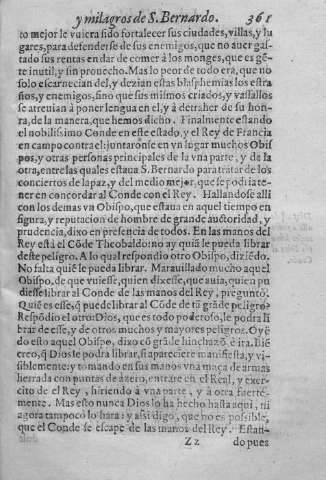 y milagros de S. Bernardo. 361
to mejor le vuiera sido fortalecer sus ciudades, villas, y lu
gares, para defenderse de sus enemigos, que no auer gas
tado sus rentas en dar de comer à los monges, que es gẽ
te inutil, y sin prouecho. Mas lo peor de todo era, que no
solo escarnecian del, y dezian estas blasphemias los estra
ños, y enemigos, sino que sus mismos criados, y vassallos
se atreuian à poner lengua en el, y à detraher de su hon
ra, de la manera, que hemos dicho. Finalmente estando
el nobilissimo Conde en este estado, y el Rey de Francia
en campo contra el: juntaronse en vn lugar muchos Obis
pos, y otras personas principales de la vna parte, y de la
otra, entre las quales estaua S. Bernardo para tratar de los
conciertos de la paz, y del medio mejor, que se podia te
ner en concordar al Conde con el Rey. Hallandose alli
con los demas va Obispo, que estaua en aquel tiempo en
figura, y reputacion de hombre de grande auctoridad, y
prudencia, dixo en presencia de todos. En las manos del
Rey està el Cõde Theobaldo: no ay quiẽ le pueda librar
deste peligro. A lo qual respondio otro Obispo, diziẽdo.
No falta quiẽ le pueda librar. Marauillado mucho aquel
Obispo, de que vuiesse, quien dixesse, que auia, quien pu
diesse librar al Conde de las manos del Rey, preguntò.
Quiẽ es esse, q̃ puede librar al Cõde de tã grãde peligro?
Respõdio el otro: Dios, que es todo poderoso, le podra li
brar de esse, y de otros muchos y mayores peligros. Oyẽ
do esto aquel Obispo, dixo cõ grãde hinchazõ, è ira. Biẽ
creo, q̃ Dios le podra librar, si apareciere manifiesta, y vi-
siblemente: y tomando en sus manos vna maça de armas
herrada con puntas de azero, entrare en el Real, y exer-
cito de el Rey, hiriendo à vna parte, y à otra fuertẽ-
mente. Mas esto nunca Dios lo ha hecho hasta aqui, ni
agora tampoco lo hara: y assi digo, que no es possible,
que el Conde se escape de las manos del Rey. Estan-
Zz do pues